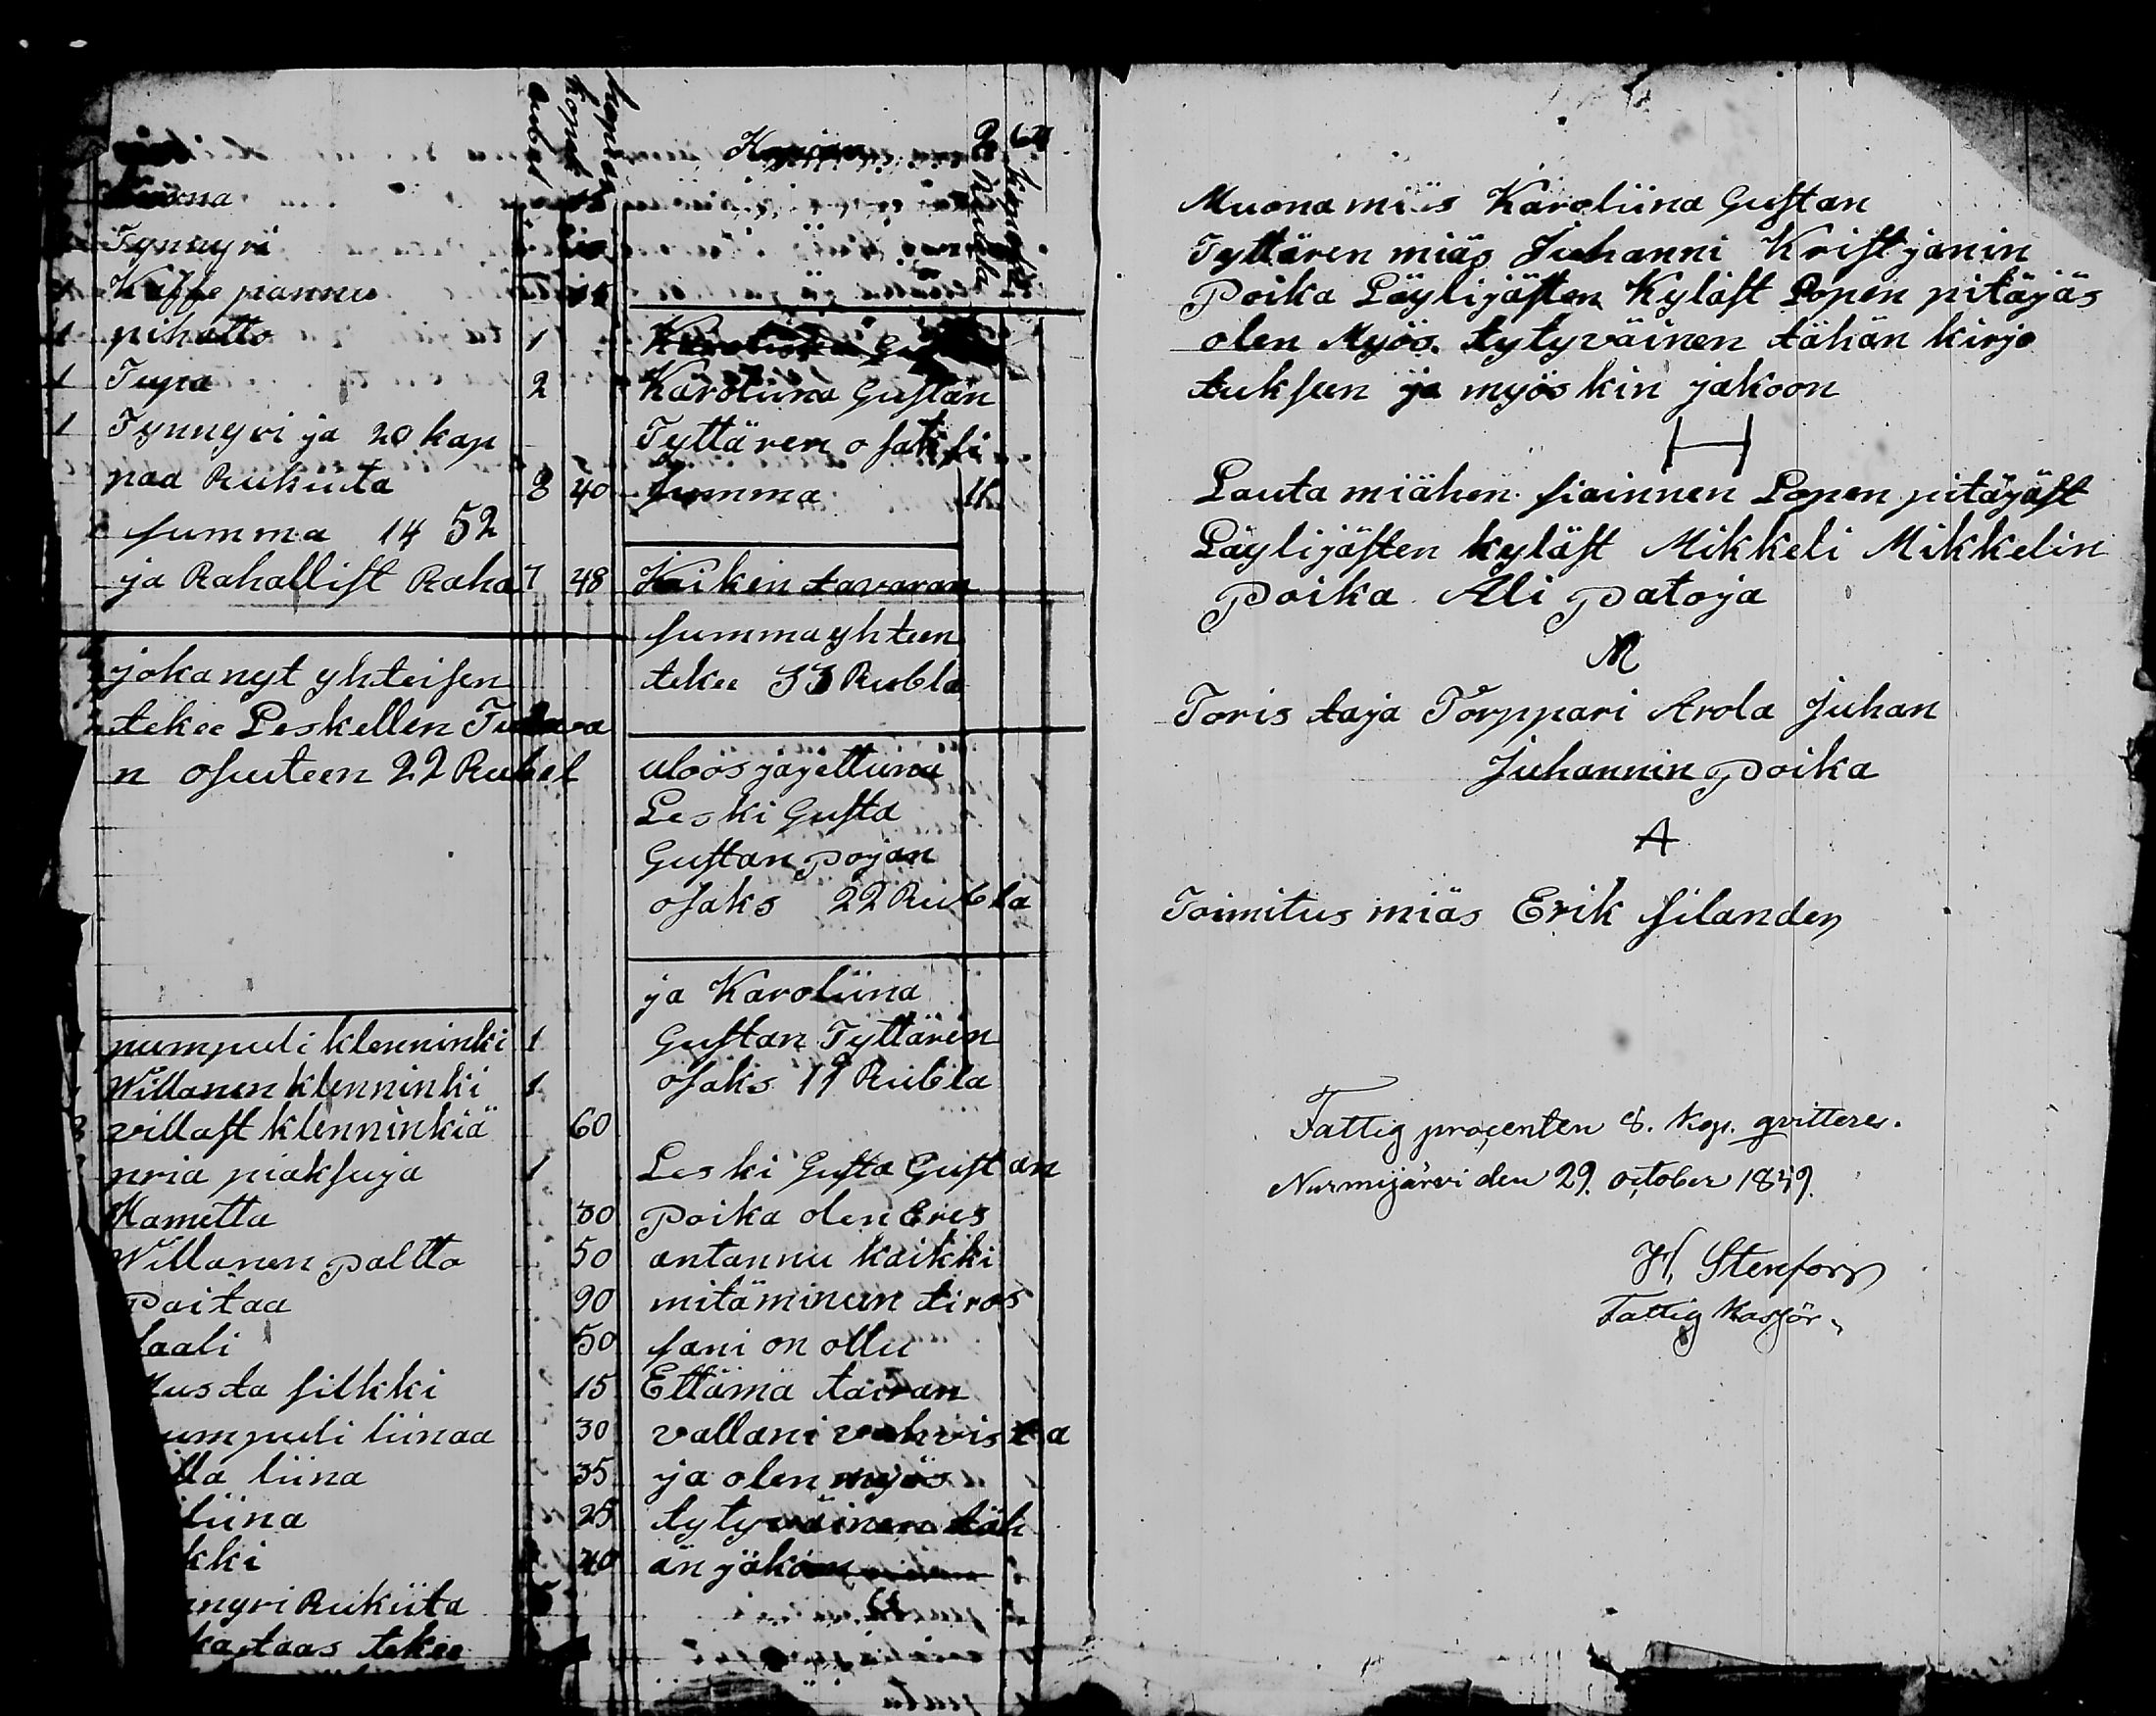 Rubel kopek
Tynnyri
1 Kaffe pannu
1 pihatto 1
1 Tupa 2
1 Tynnyri ja 20 kap
paa Rukiita 3 40
summa 14 52
ja Rahallist Raha 7 48
joka nyt yhteisen
tekee Leskellen Tu
n osuteen 22 Rubel
pumpuli klenninki 1
Willanen klenninki 1
3 villast klenninkiä 60
pria piaksuja 1
Kametta 30
Willanen paltto 50
Paitaa 90
saali 50
Musta silkki 15
umpuli liinaa 30
lla liina 35
liina 25
kki 40
nnyri Rukiita 5
ka taas tekee
Karoliina Gustan
Tyttären osaksi
summa 11
Kaiken tavaran
summa yhteen
tekee 33 Rubla
uloosjajettuna
Leski Gusta
Gustan pojan
osaks 22 Rubla
ja Karoliina
Gustan Tyttären
osaks 11 Rubla
Leski Gusta Gustan
Poika olen Eres
antannu kaikki
mitä minun tiros
sani on ollu
Ettämä taivan
vallani vahvista
ja olen myös
tytyväinen täh
än jakon
Muona miäs Karoliina Gustan
Tyttären miäs Juhanni Kristjanin
Poika Läylijästen Kyläst Lopen pitäjäs
olen Myös tytyväinen tähän kirjo
tuksen ja myöskin jakoon
H
Lauta miähen siainnen Lopen pitäjäst
Läylijästen kyläst Mikkeli Mikkelin
Poika Ali Patoja
M
Toristaja Torppari Arola Juhan
Juhannin Poika
A
Toimitus miäs Erik Silander
Fattig procenten 8. Kop. qvitteres.
Nurmijärvi den 29. october 1849.
Stenfors
Fattig Kassör